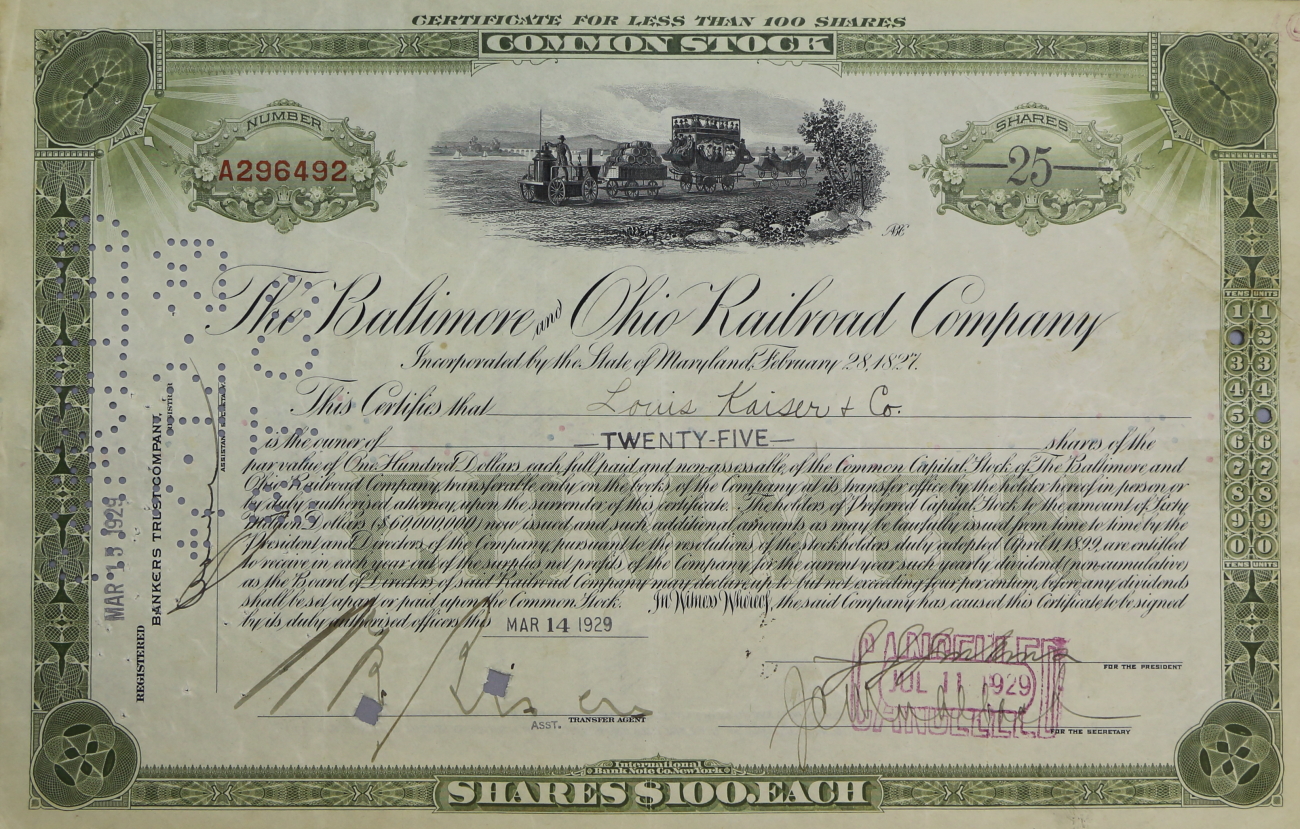 CERTIFICATE FOR LESS THAN 100 SHARES
COMMON STOCK
NUMBER
A296492
SHARES
25
The Baltimore and Ohio Railroad Company
Incorporated by the State of Maryland, February 28, 1827.
This Certifies that Louis Kaiser & Co.
is the owner of —TWENTY-FIVE— shares of the
par value of One Hundred Dollars each full paid and non-assessable, of the Common Capital Stock of The Baltimore and
Ohio Railroad Company, transferable only on the books of the Company at its transfer office by the holder hereof in person or
by duly authorised attorney, upon the surrender of this certificate. The holders of Preferred Capital Stock to the amount of Sixty
Million Dollars ($60,000,000) now issued and such additional amounts as may be lawfully issued from time to time by the
President and Directors of the Company, pursuant to the resolutions of the stockholders duly adopted April 11, 1899, are entitled
to receive in each year out of the surplus net profits of the Company for the current year such yearly dividend (non-cumulative)
as the Board of Directors of said Railroad Company may declare, up to but not exceeding four per centum, before any dividends
shall be set apart or paid upon the Common Stock. In Witness Whereof, the said Company has caused this Certificate to be signed
by its duly authorised officers this MAR 14 1929
COMMON
ASST. TRANSFER AGENT
FOR THE PRESIDENT
FOR THE SECRETARY
CANCELLED
JUL 11 1929
CANCELLED
REGISTERED MAR 15 1929
BANKERS TRUST COMPANY,
REGISTRAR
ASSISTANT SECRETARY
TENS UNITS
1 1
2
3 3
4 4
5
6 6
7 7
8 8
9 9
0 0
TENS UNITS
International
Bank Note Co. New York
SHARES $100. EACH